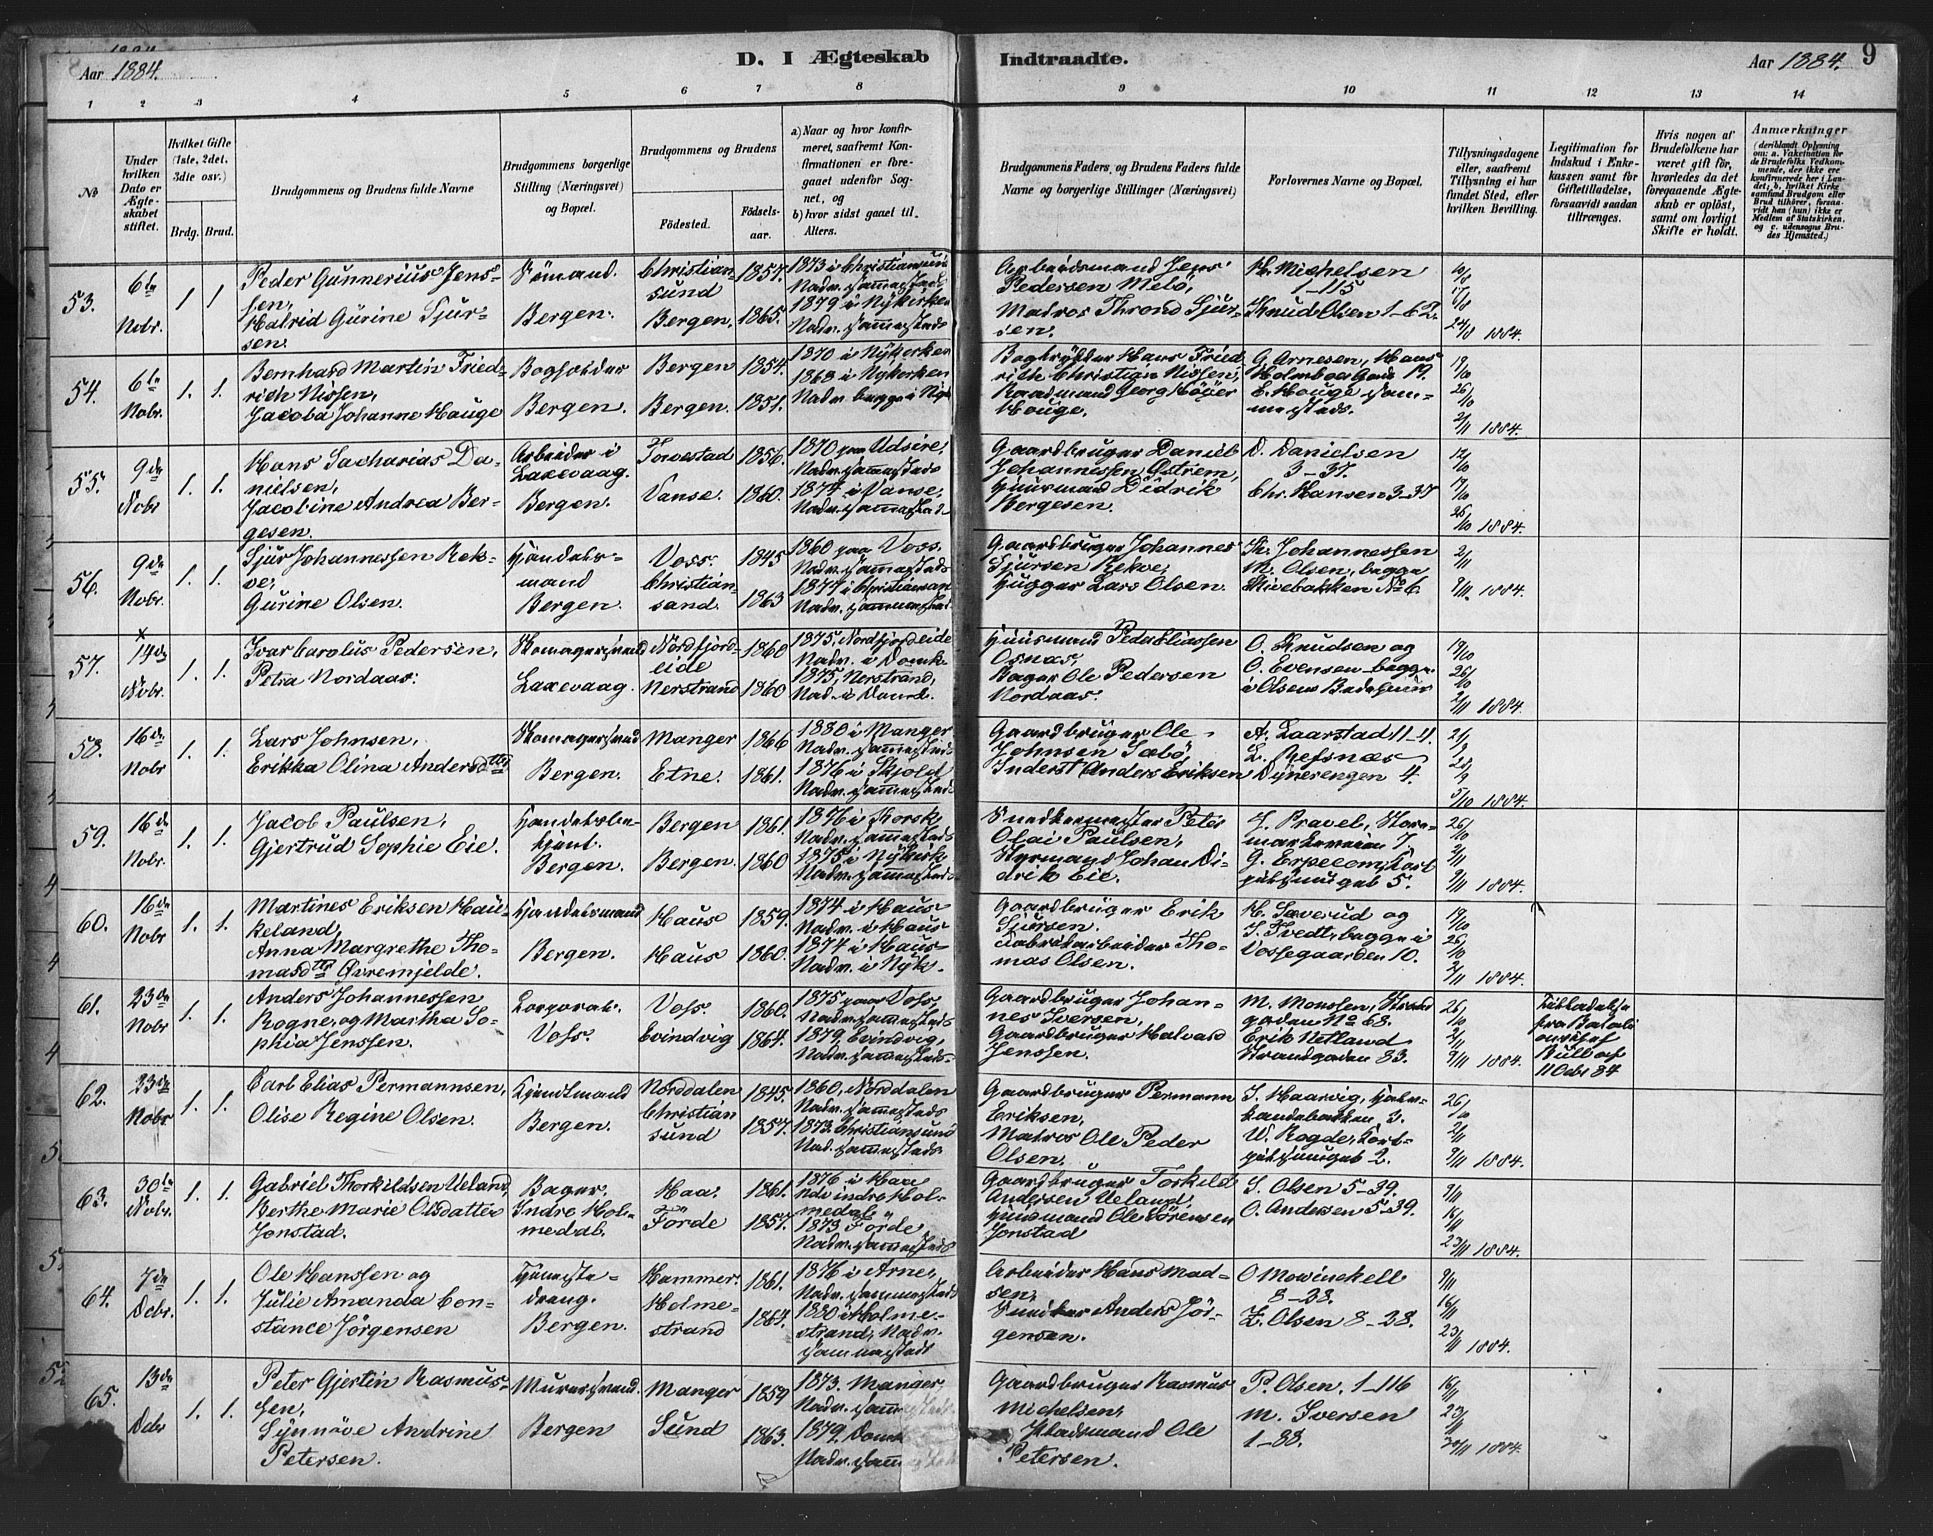 Aar 1884.
D. I Ægteskab
Indtraadte.
Aar 1884.
9
1 2 3 4 5 6 7 8 9 10 11 12 13 14
No
Under hvilken Dato er Ægteskabet stiftet.
Hvilket Gifte (1ste, 2det, 3die osv.)
Brdg. Brud.
Brudgommens og Brudens fulde Navne
Brudgommens borgerlige Stilling (Næringsvei) og Bopæl.
Brudgommens og Brudens
Födested.
Födselsaar.
a) Naar og hvor konfirmeret, saafremt Konfirmationen er foregaaet udenfor Sognet, og
b) hvor sidst gaaet til Alters.
Brudgommens Faders og Brudens Faders fulde Navne og borgerlige Stillinger (Næringsvei)
Forlovernes Navne og Bopæl.
Tillysningsdagene eller, saafremt Tillysning ei har fundet Sted, efter hvilken Bevilling.
Legitimation for Indskud i Enkekassen samt for Giftetilladelse, forsaavidt saadan tiltrænges.
Hvis nogen af Brudefolkene har været gift för, hvorledes da det foregaaende Ægteskab er oplöst, samt om lovligt Skifte er holdt.
Anmærkninger
(deriblandt Oplysning om: a. Vakcination for de Brudefolks Vedkommende, der ikke ere konfirmerede her i Landet; b. hvilket Kirkesamfund Brudgom eller Brud tilhører, forsaavidt han (hun) ikke er Medlem af Statskirken, og c. udensogns Brudes Hjemsted.)
53. 6te Nobr. 1 1
Peder Gunnerius Jenssen,
Sømand.
Christiansund 1857.
1873 i Christiansund
Nadv. sammesteds
Arbeidsmand Jens Pedersen Melö,
M. Michelsen 1-115
Sjursen.
Bergen. Bergen. 1865.
1879 i Nykirken
Nadv. sammesteds
Matros Thrond Sjursen.
Knud Olsen 1-62.
10/8 17/8 24/8 1884
54. 6te Nobr. 1. 1.
Bernhard Martin Friedrich Nissen,
Bergen 1854.
1870 i Nykirken
Hans Friedrich Christian Nissen,
G. Arnesen, Hans Holmboe Gade 19.
Jacoba Johanne Hauge
Bergen. Bergen. 1851.
1868 i Nykirken
Georg Höyer Houge.
19/10 26/10 2/11 1884.
55. 9de Nobr 1. 1.
Hans Sacharias Danielsen,
Arbeider i Laxevaag.
1856.
1870 paa Udsire,
Nadv. sammesteds
Gaardbruger Daniel Johannessen Østrem,
D. Danielsen 3-37.
Jacobine Andrea Bergesen.
Bergen. Vanse. 1860.
1874 i Vanse,
Nadv. sammesteds
Huusmand Didrik Bergesen.
Chr. Hansen 3-37
12/10 19/10 26/10 1884.
56. 9de Nobr. 1. 1.
Sjur Johannessen Rekve,
Handelsmand
Voss. 1845
1860 paa Voss.
Nadv. sammesteds
Gaardbruger Johannes Sjursen Rekve,
Johannessen
Gurine Olsen.
Bergen. Christiansand. 1863
1877 i Christiansand
Nadv. sammesteds
Hugger Lars Olsen.
M. Olsen, begge Skivebakken No 6.
2/11 9/11 1884.
57. 14de Nobr. 1. 1.
Ivar Carolus Pedersen,
Skomagersvend
Nordfjordeide 1860
1875. Nordfjordeide
Nadv. i Domk.
Huusmand Peder Eliassen Osnæs,
O. Knudsen og
Petra Nordaas.
Laxevaag. Nerstrand 1860
1875, Nerstrand,
Bager Ole Pedersen Nordaas.
O. Evensen begge
19/10 26/10 2/11 1884.
58. 16de Nobr 1. 1.
Lars Johnsen,
Skomagersvend
Manger 1866
1880 i Manger
Nadv. sammesteds
Gaardbruger Ole Johnsen Sæbö,
A. Laarstad 11-11.
Erikka Olina Andersdtt
Bergen. Etne. 1861.
1876 i Skjold
Nadv. sammesteds
Inderst Anders Eriksen
L. Refsnæs Dynerengen 4.
21/9 28/9 5/10 1884.
59. 16de Nobr. 1. 1.
Jacob Paulsen,
Handelsbetjent.
Bergen 1861.
1876 i Korsk.
Nadv. sammesteds
Snedkermester Peter Olai Paulsen,
Gjertrud Sophie Eie.
Bergen. Bergen. 1860
1875 i Nykirk
Nadv. sammesteds
Styrmand Johan Didrik Eie.
26/10 2/11 9/11 1884.
60. 16de Nobr 1. 1.
Martines Eriksen Haukeland,
Handelsmand
Haus 1859.
1874 i Haus
Nadv. i Haus
Gaardbruger Erik Sjursen.
H. Sæverud og
Anna Margrethe Thomasdtt Øvremjelde.
Bergen. Haus 1860.
1874 i Haus
Nadv. i Nyk.
Fabrikarbeider Thomas Olsen.
Tvedt, begge i Vossegaarden 10.
19/10 26/10 2/11 1884.
61. 23de Nobr 1. 1.
Anders Johannessen Rogne, og Martha Sophia Jenssen.
Corporal.
Voss.
Voss. 1860.
Evindvig 1864.
1875 paa Voss
Nadv. sammesteds
1879, Evindvig,
Nadv. sammesteds
Gaardbruger Johannes Iversen,
Gaardbruger Halvard Jenssen.
M. Monssen, Strandgaden No 68.
Erik Natland Strandgaden 83.
26/10 2/11 9/11 1884
Tilladelse fra
11 Octr 84
62. 23de Nobr. 1. 1.
Carl Elias Permannsen,
Norddalen 1845.
1860, Norddalen
Nadv. sammesteds
Gaardbruger Permann Eriksen,
Olise Regine Olsen.
Bergen. Christiansund 1857.
1873. Christiansund
Nad. sammesteds
Matros Ole Peder Olsen.
W. Rogde,
26/10 2/11 9/11 1884.
63. 30te Nobr. 1. 1.
Gabriel Thorkildsen Ueland,
Bager, Indre Holmedal.
Haa. 1861.
1876 i Haa
Ndv indre Holmedal
Gaardbruger Torkild Andersen Ueland,
S. Olsen 5-39.
Berthe Marie Olsdatter Jonstad.
Förde 1857.
1873 Förde
Nadv. sammesteds
Huusmand Ole Sörensen Jonstad
O. Andersen 5-39.
9/11 16/11 23/11 1884.
64. 7de Debr. 1. 1.
Ole Hanssen og
Tjenestedreng.
Hammer. 1861.
1876 i Arne,
Nadv. sammesteds
Arbeider Hans Madsen,
O Mowinckell 8-28.
Julie Amanda Constance Jörgensen
Bergen. Holmestrand 1864.
1880 i Holmestrand, Nadv. sammesteds
Snedker Anders Jörgensen.
L. Olsen 8-28.
9/11 16/11 23/11 1884.
65. 13de Debr 1. 1.
Peter Gjertin Rasmussen,
Murersvend.
Manger 1859
1873. Manger,
Nadv. samme
Gaardbruger Rasmus Michelsen,
P. Olsen. 1-116
Synnöve Andrine Petersen.
Bergen Sund 1863.
1879. Domk
Nadv. samm
Pladsmand Ole Petersen.
M. Iversen 1-88.
16/11 23/11 30/11 1884.